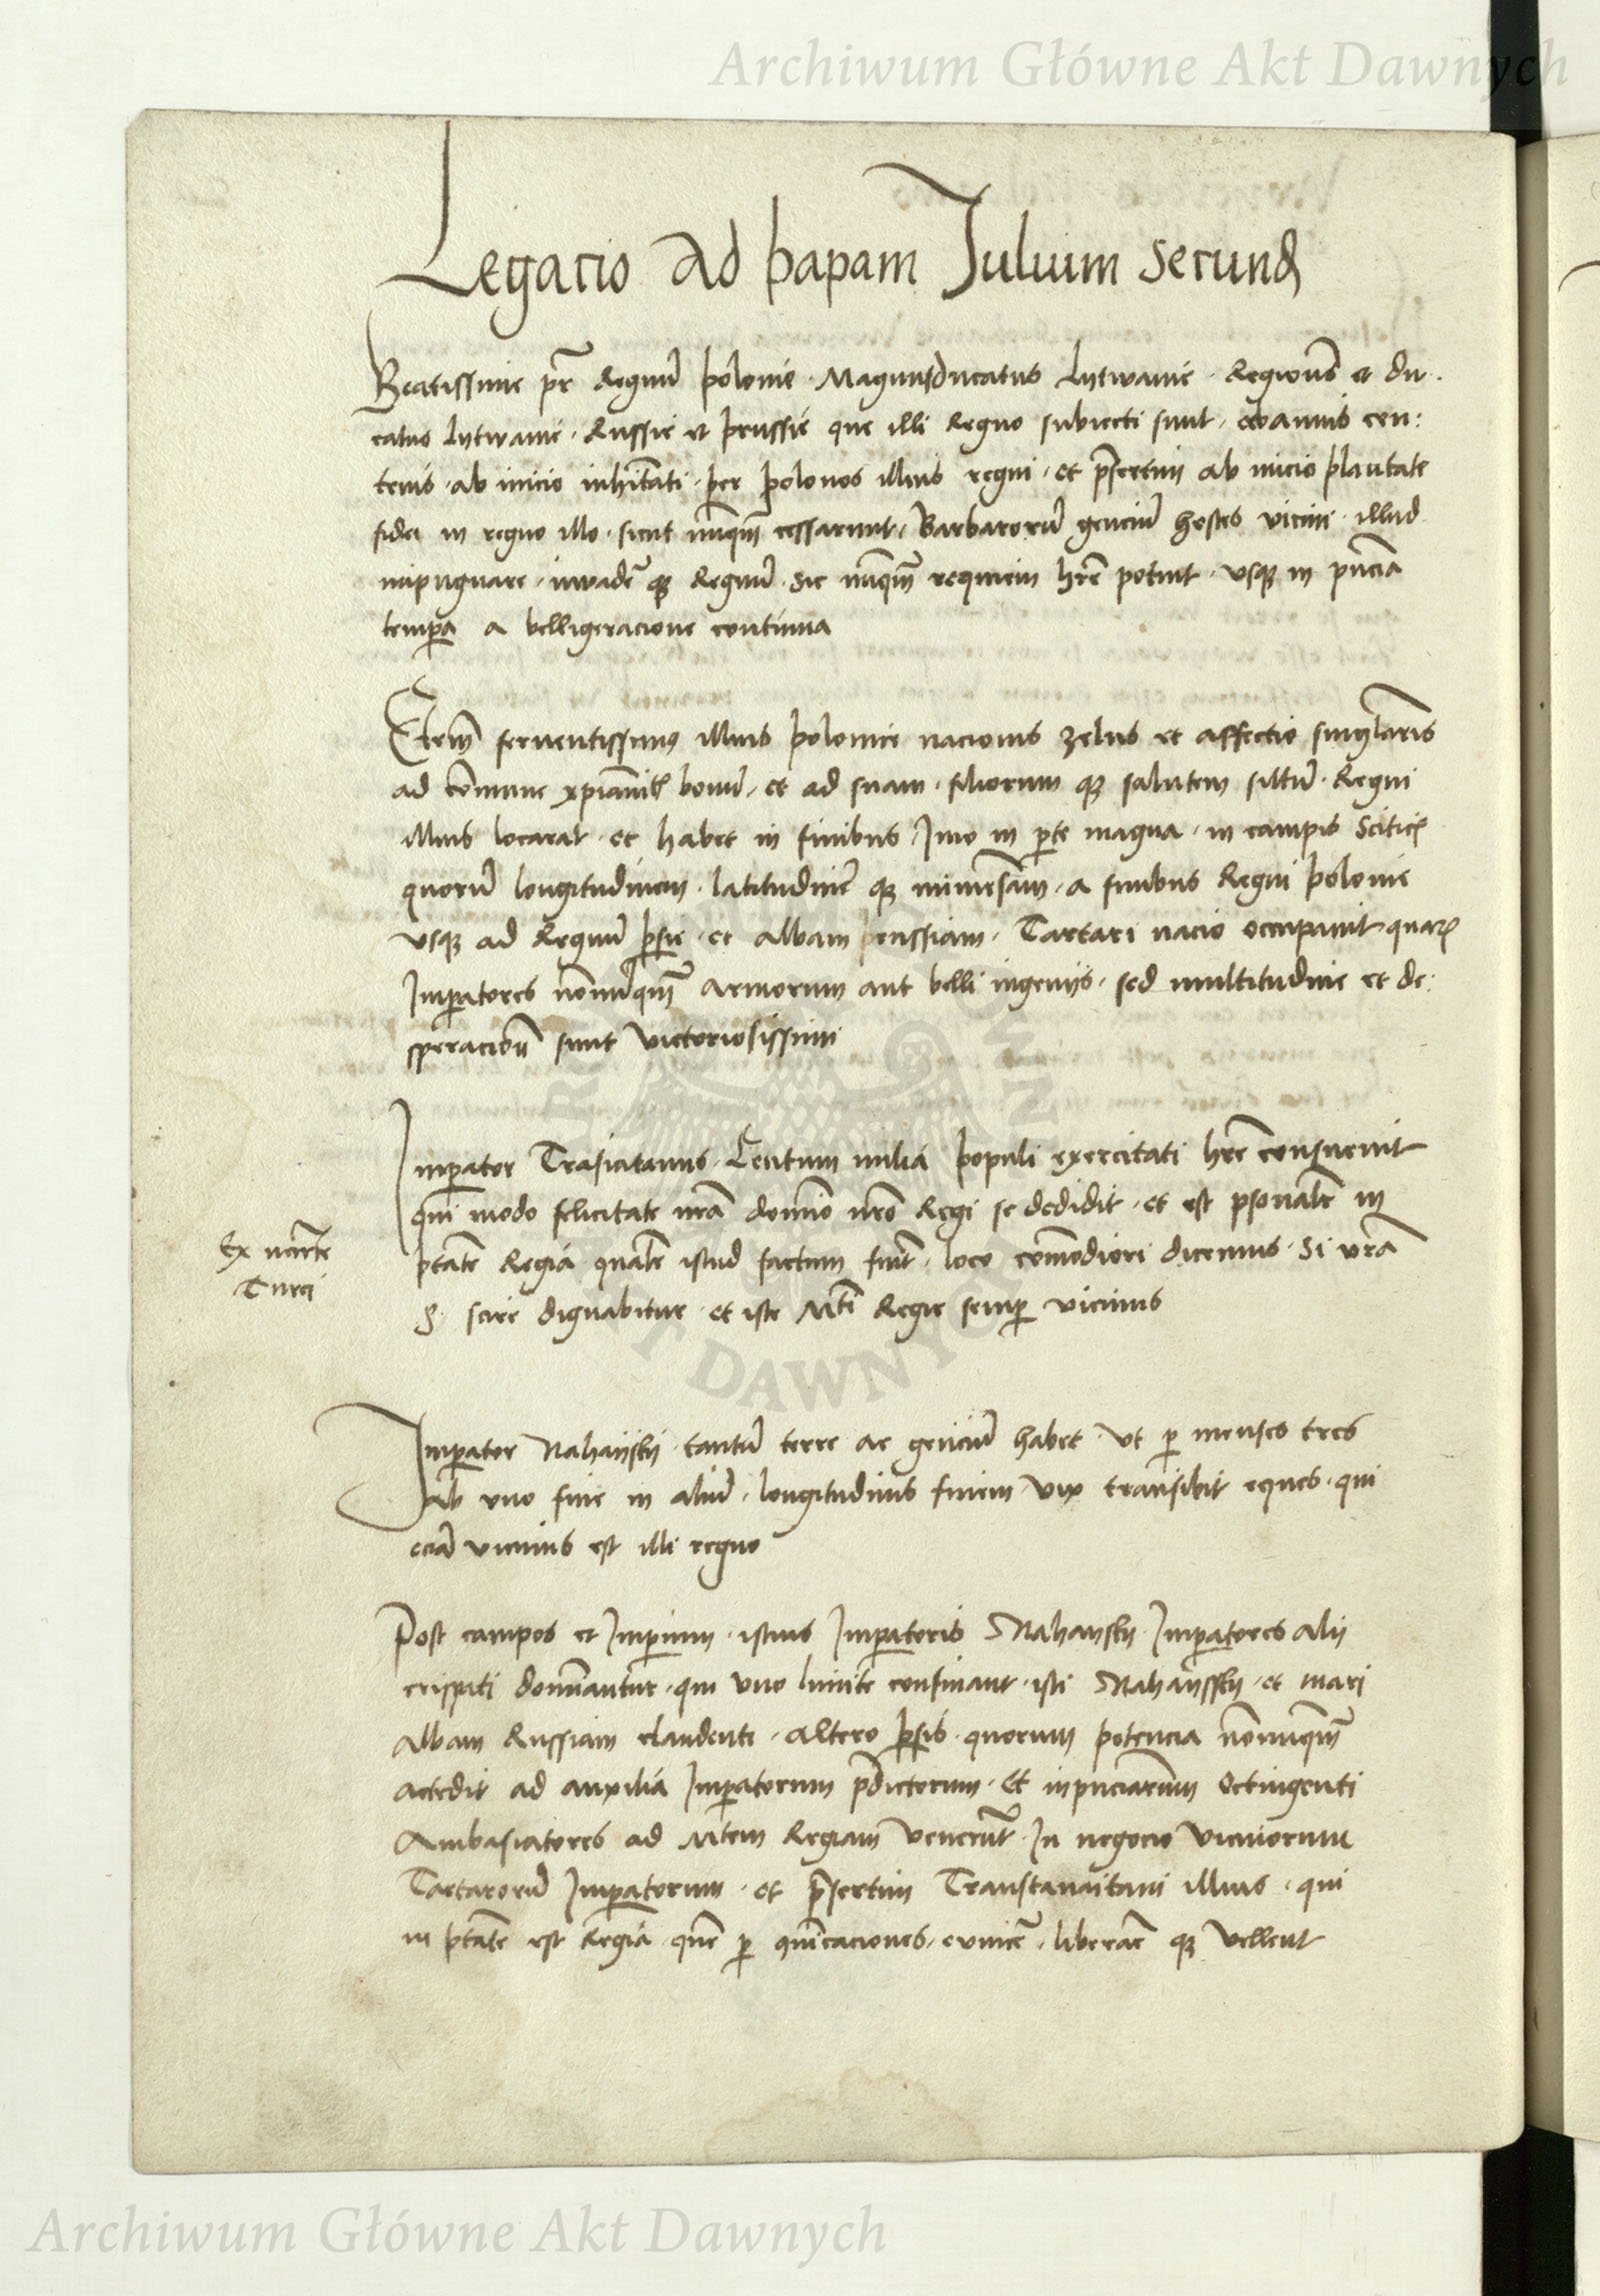 Archiwum Główne Akt Dawnych
Legacio ad papam Julium Secund
Beatissime pr̄ Regnū polonie · Magnusducatus Lytwanie · Regionēs et du·
catus Lytwanie · Russie et prussie que illi Regno subiecti sunt · annis cen:
tenis · ab inicio inhītati · per polonos illius regni · et p̄sertim ab inicio plantate
fidei in regno illo · sicut nūq̄m cessarunt · Barbarorū genciū hostes vicini · illud
inpugnare · invadē qȝ Regnū · sic nūq̄m requiem hr̄e potuit · vsqȝ in pn̄cia
temp̄a a belligeracione continua
Eteīm ferventissimus illius polonice nacionis zelus et affectio singlāris
ad cōmune xp̄ianit bonū · et ad suam · filiorum qȝ salutem siltū · Regni
illius locarat · et habet in finibus Imo in p̄te magna · in campis Scitic
quorū longitudinem · latitudinē qȝ inmēsam · a finibus Regni polonie
vsqȝ ad Regnū p̄sie · et albam prussiam · Tartari nacio occupavit quaꝝ
Imp̄atores nōnūq̄m armorum aut belli ingeniis · sed multitudine et de:
speracioīi sunt victoriosissimi
Imp̄ator Centum milia populi exercitati hr̄e consuevit
qui modo felicitate nr̄a domīo nr̄o Regi se dedidit · et est p̄sonalē in
p̄tate Regia qualē istud factum fuīt · loco cōmodiori dicemus · Si vr̄a
S · scire dignabitur · et iste Mtī Regie semp̄ vicinus
Ex
Turci
Imp̄ator Nahaysky · tantū terre ac genciū habet · vt p̄ menses tres
ab vno fine in aliū · longitudinis finem vix transibit eques · qui
eciā vicinus est illi regno
Post campos et Imp̄ium · istius Imp̄atoris Nahaysky Imp̄atores alii
crispati domīantur · qui vno limite confinant · isti Nahayssky · et mari
albam Russiam claudente · altero p̄sis · quorum potencia nōnunq̄m
accedit ad auxilia Imp̄atorum p̄dictorum · Et inpn̄ciarum Octingenti
Ambasiatores ad Mtem Regiam venerūt · In negocio vicinorum
Tartarorū Imp̄atorum · et p̄sertim Transtanaitani illius · qui
in p̄tate est Regia quē p̄ · liberaē qȝ vellent
Archiwum Główne Akt Dawnych